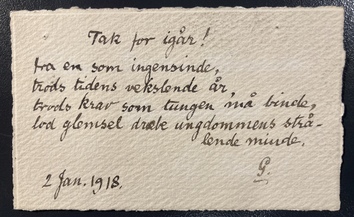 Tak for igår!
fra en som ingensinde,
trods tidens vekslende år,
trods krav som tungen må binde,
lod glemsel dræbe ungdommens strå-
lende minde.
G.
2 Jan. 1918.